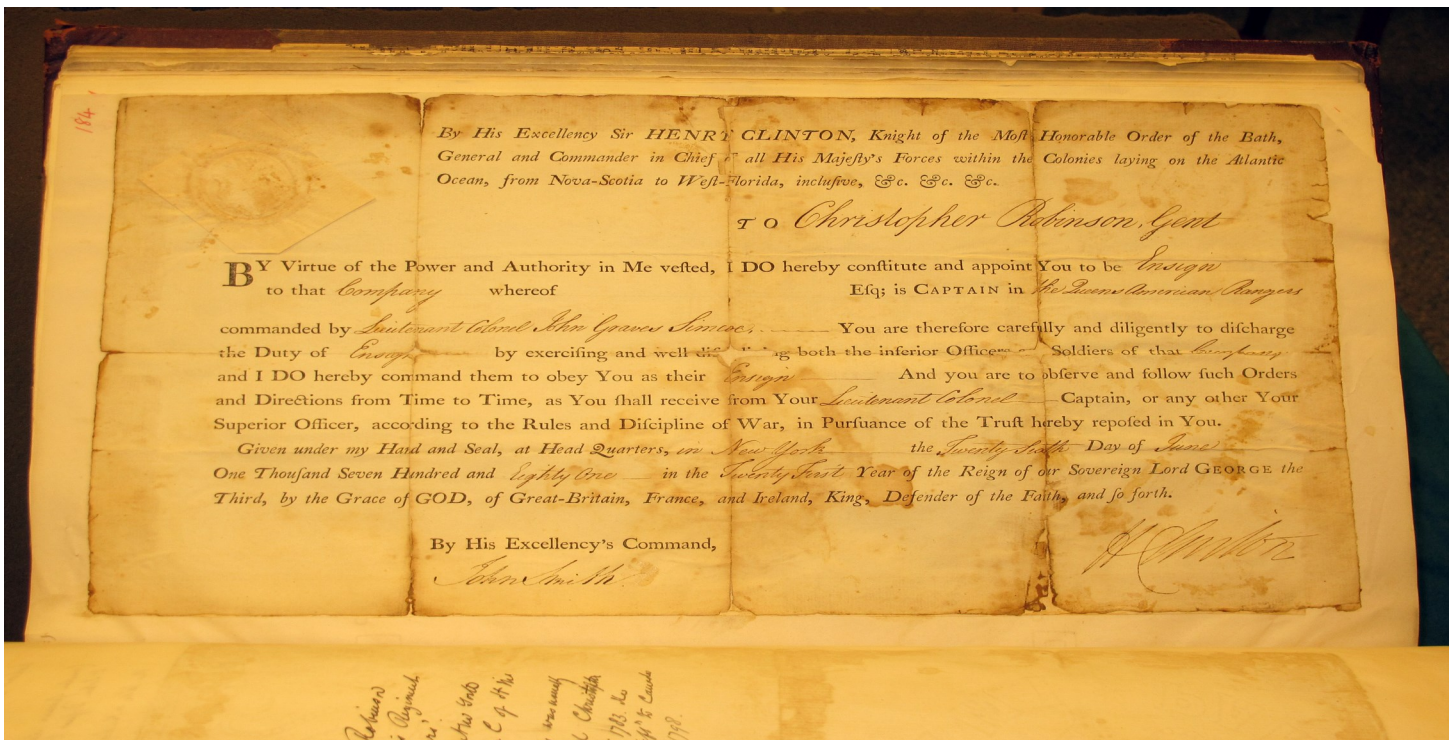 184
By His Excellency Sir HENRY CLINTON, Knight of the Moſt Honorable Order of the Bath,
General and Commander in Chief of all His Majeſty's Forces within the Colonies laying on the Atlantic
Ocean, from Nova-Scotia to Weſt-Florida, incluſive, &c. &c. &c.
TO Christopher Robinson, Gent
BY Virtue of the Power and Authority in Me veſted, I DO hereby conſtitute and appoint You to be Ensign
to that Company whereof Eſq; is CAPTAIN in the Queens American Rangers
commanded by Lieutenant Colonel John Graves Simcoe, You are therefore carefully and diligently to diſcharge
the Duty of Ensign by exerciſing and well diſ ing both the inferior Officers Soldiers of that Company
and I DO hereby command them to obey You as their Ensign And you are to obſerve and follow ſuch Orders
and Directions from Time to Time, as You ſhall receive from Your Lieutenant Colonel Captain, or any other Your
Superior Officer, according to the Rules and Diſcipline of War, in Purſuance of the Truſt hereby repoſed in You.
Given under my Hand and Seal, at Head Quarters, in New York the Twenty Sixth Day of June
One Thouſand Seven Hundred and Eighty One in the Twenty First Year of the Reign of our Sovereign Lord GEORGE the
Third, by the Grace of GOD, of Great-Britain, France, and Ireland, King, Defender of the Faith, and ſo forth.
By His Excellency's Command,
H Clinton
John Smith
Robinson
Regiment
C of H M
was
Christopher
1783.
to
1798.